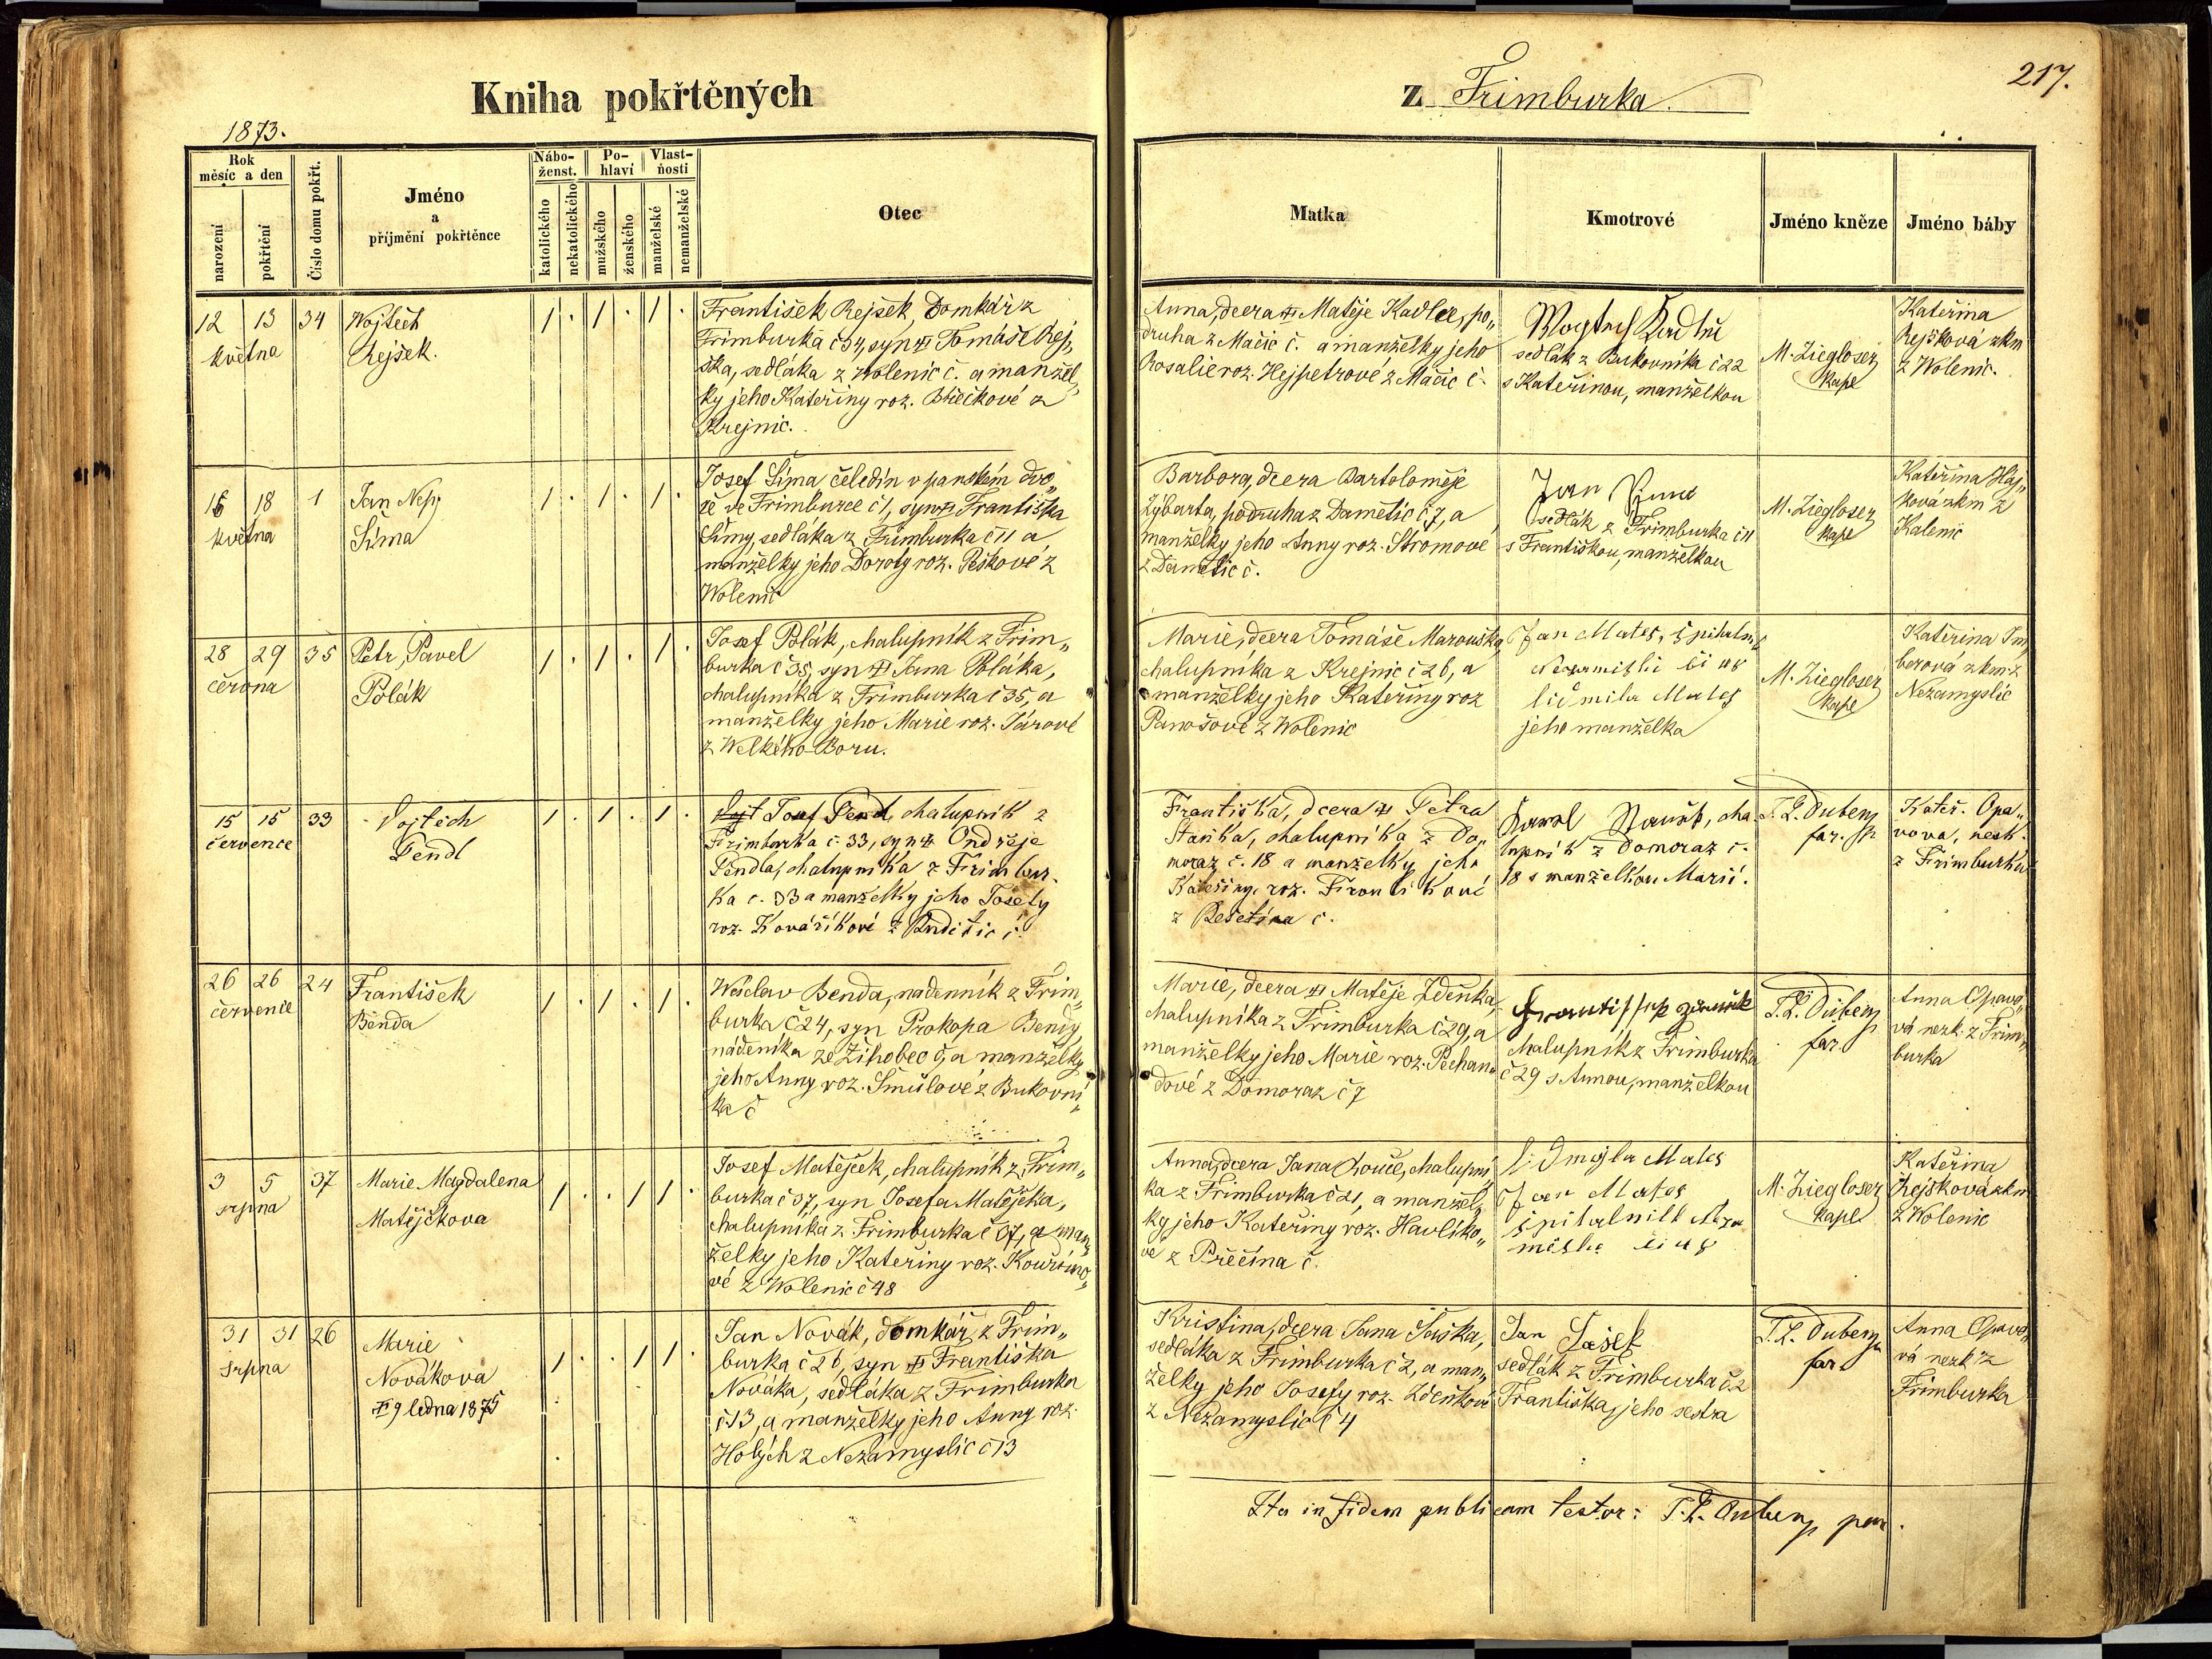 Kniha pokřtěných
z Frimburka.
217.
1873.
Rok
měsíc a den
narození
pokřtění
Číslo domu pokřt.
Jméno
a
příjmění pokřtěnce
Nábo-
ženst.
katolického
nekatolického
Po-
hlaví
mužského
ženského
Vlast-
ňosti
manželské
nemanželské
Otec
Matka
Kmotrové
Jméno kněze
Jméno báby
12 13 34
května
Wojtěch
Rejšek.
František Rejšek, Domkář z
Frimburka č 34, syn † Tomáše Rej„
ška, sedláka z Wolenic č. a manžel„
ky jeho Kateřiny roz. z
Krejnic.
Anna, dcera † Matěje Kadlec, po„
druha z Mačic č. a manželky jeho
Rosalie roz. Hejpetrové z Mačic č.
sedlák z Bukovníka č 22
s Kateřinou, manželkou
M. Ziegloser
Kapl
Kateřina
Rejšková zkm
z Wolenic.
16 18 1
května
Jan Nep.
Šíma
Josef Šíma čeledín v panském dvo„
ře ve Frimburce č 1, syn † Františka
Šímy, sedláka z Frimburka č 11 a
manželky jeho Doroty roz. Peškové z
Wolenic
Barbora, dcera Bartoloměje
Zýbarta, podruha z Damětic č 7, a
manželky jeho Anny roz. Stromové
z Damětic č.
Jan
sedlák z Frimburka č 11
s Františkou, manželkou
M. Ziegloser
Kapl
Kateřina Háj„
ková zkm z
Kalenic
28 29 35
června
Petr, Pavel
Polák
Josef Polák, chalupník z Frim„
burka č 35, syn † Jana Poláka,
chalupníka z Frimburka č 35, a
manželky jeho Marie roz. Járové
z Welkého Boru.
Marie, dcera Tomáše Marouška
chalupníka z Krejnic č 26, a
manželky jeho Kateřiny roz
Panošové z Wolenic
Jan Mateš, špitalník
čí 48
lidmila Mateš
jeho manželka
M. Ziegloser
Kapl
Kateřina Im„
berová zkm z
Nezamyslic
15 15 33
července
Vojtěch
Pendl
Josef Pendl, chalupník z
Frimburka č. 33, syn † Ondřeje
Pendla, chalupníka z Frimbur„
ka č. 33 a manželky jeho Josefy
roz. Kovaříkové z č.
Františka, dcera † Petra
Staňka, chalupníka z Do„
moraz č. 18 a manželky jeho
Kateřiny, roz.
z č.
Karel cha„
lupník z Domoraz č.
18 s manželkou Marií.
T. L. Duberg
far.
Kateř. Opa„
vova, nezk.
z Frimburka
26 26 24
července
František
Benda
Wáclav Benda, nadenník z Frim„
burka č 24, syn Prokopa Bendy,
nádeníka ze Žihobec č, a manželky
jeho Anny roz. Šmůlové z Bukovní„
ka č
Marie, dcera † Matěje Zdeňka,
chalupníka z Frimburka č 29, a
manželky jeho Marie roz. Pechan„
dové z Domoraz č 7
chalupník z Frimburka
č 29 s Annou, manželkou
T. L. Duberg
far.
Anna Opavo„
vá nezk. z Frim„
burka
3 5 37
srpna
Marie Magdalena
Matějčkova
Josef Matějček, chalupník z Frim„
burka č 37, syn Josefa Matějčka,
chalupníka z Frimburka č 37, a man„
želky jeho Kateřiny roz.
vé z Wolenic č 48
Anna, dcera Jana Louče, chalupní„
ka z Frimburka č 21, a manžel„
ky jeho Kateřiny roz. Havlíko„
vé z Přečína č.
Mateš
Jan Mateš
čí 48
M. Ziegloser
Kapl.
Kateřina
Rejšková zkm
z Wolenic
31 31 26
srpna
Marie
Novákova
† 9 ledna 1875
Jan Novák, domkář z Frim„
burka č 26, syn † Františka
Nováka, sedláka z Frimburka
č 13, a manželky jeho Anny roz.
Holých z Nezamyslic č 13
Kristina, dcera Jana Jaška,
sedláka z Frimburka č 2, a man„
želky jeho Josefy roz. Zdeňkové
z Nezamyslic č 4
Jan Jašek
sedlák z Frimburka č 2
Františka, jeho sestra
T. L. Duberg
far
Anna Opavo„
vá nezk z
Frimburka
Ita in fidem publicam testor: T. L. Duberg par.